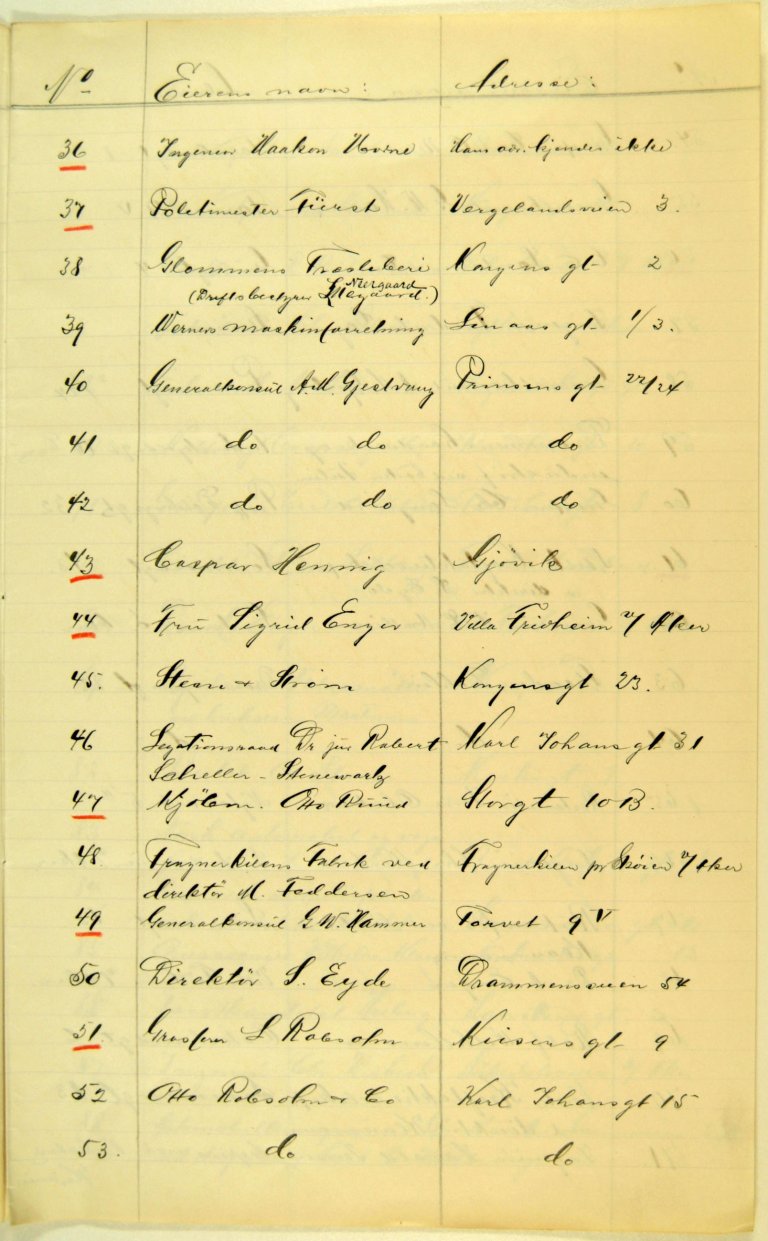 No Eierens navn: Adresse:
36 Ingeniør Haakon Hovine Hans adr. kjendes ikke
37 Politimester Fürst Vergelandsveien 3.
38 Glommens Træsliberi Kongens gt 2
(Driftsbestyrer Neergaard.)
39 Werners maskinforretning Linaas gt 1/3.
40 Generalkonsul A.M. Gjestvang Prinsens gt 22/24
41 do do do
42 do do do
43 Caspar Hennig Gjövik
44 Fru Sigrid Enger Villa Fridheim v/ Aker
45. Steen & Ström Kongensgt 23.
46 Legationsraad Dr jur Robert Karl Johans gt 31
Scheller - Steinwartz
47 Kjöbm. Otto Ruud Storgt 10 B.
48. Frognerkilens Fabrik ved Frognerkilen pr Skøien v/ Aker
direktör M. Feddersen
49 Generalkonsul G.W. Hammer Torvet 9 V
50 Direktör S. Eyde Drammensveien 54
51. Grosserer L Robsahm Keisers gt 9
52 Otto Robsahm & Co Karl Johansgt 15
53. do do